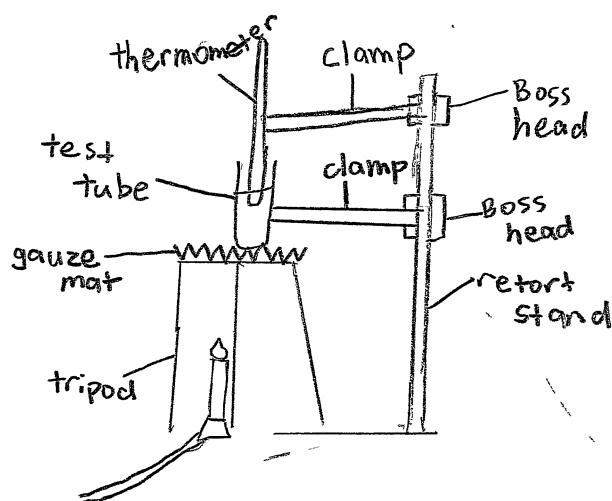 thermometer
clamp
Boss
head
test
tube
clamp
Boss
head
gauze
mat
retort
stand
tripod